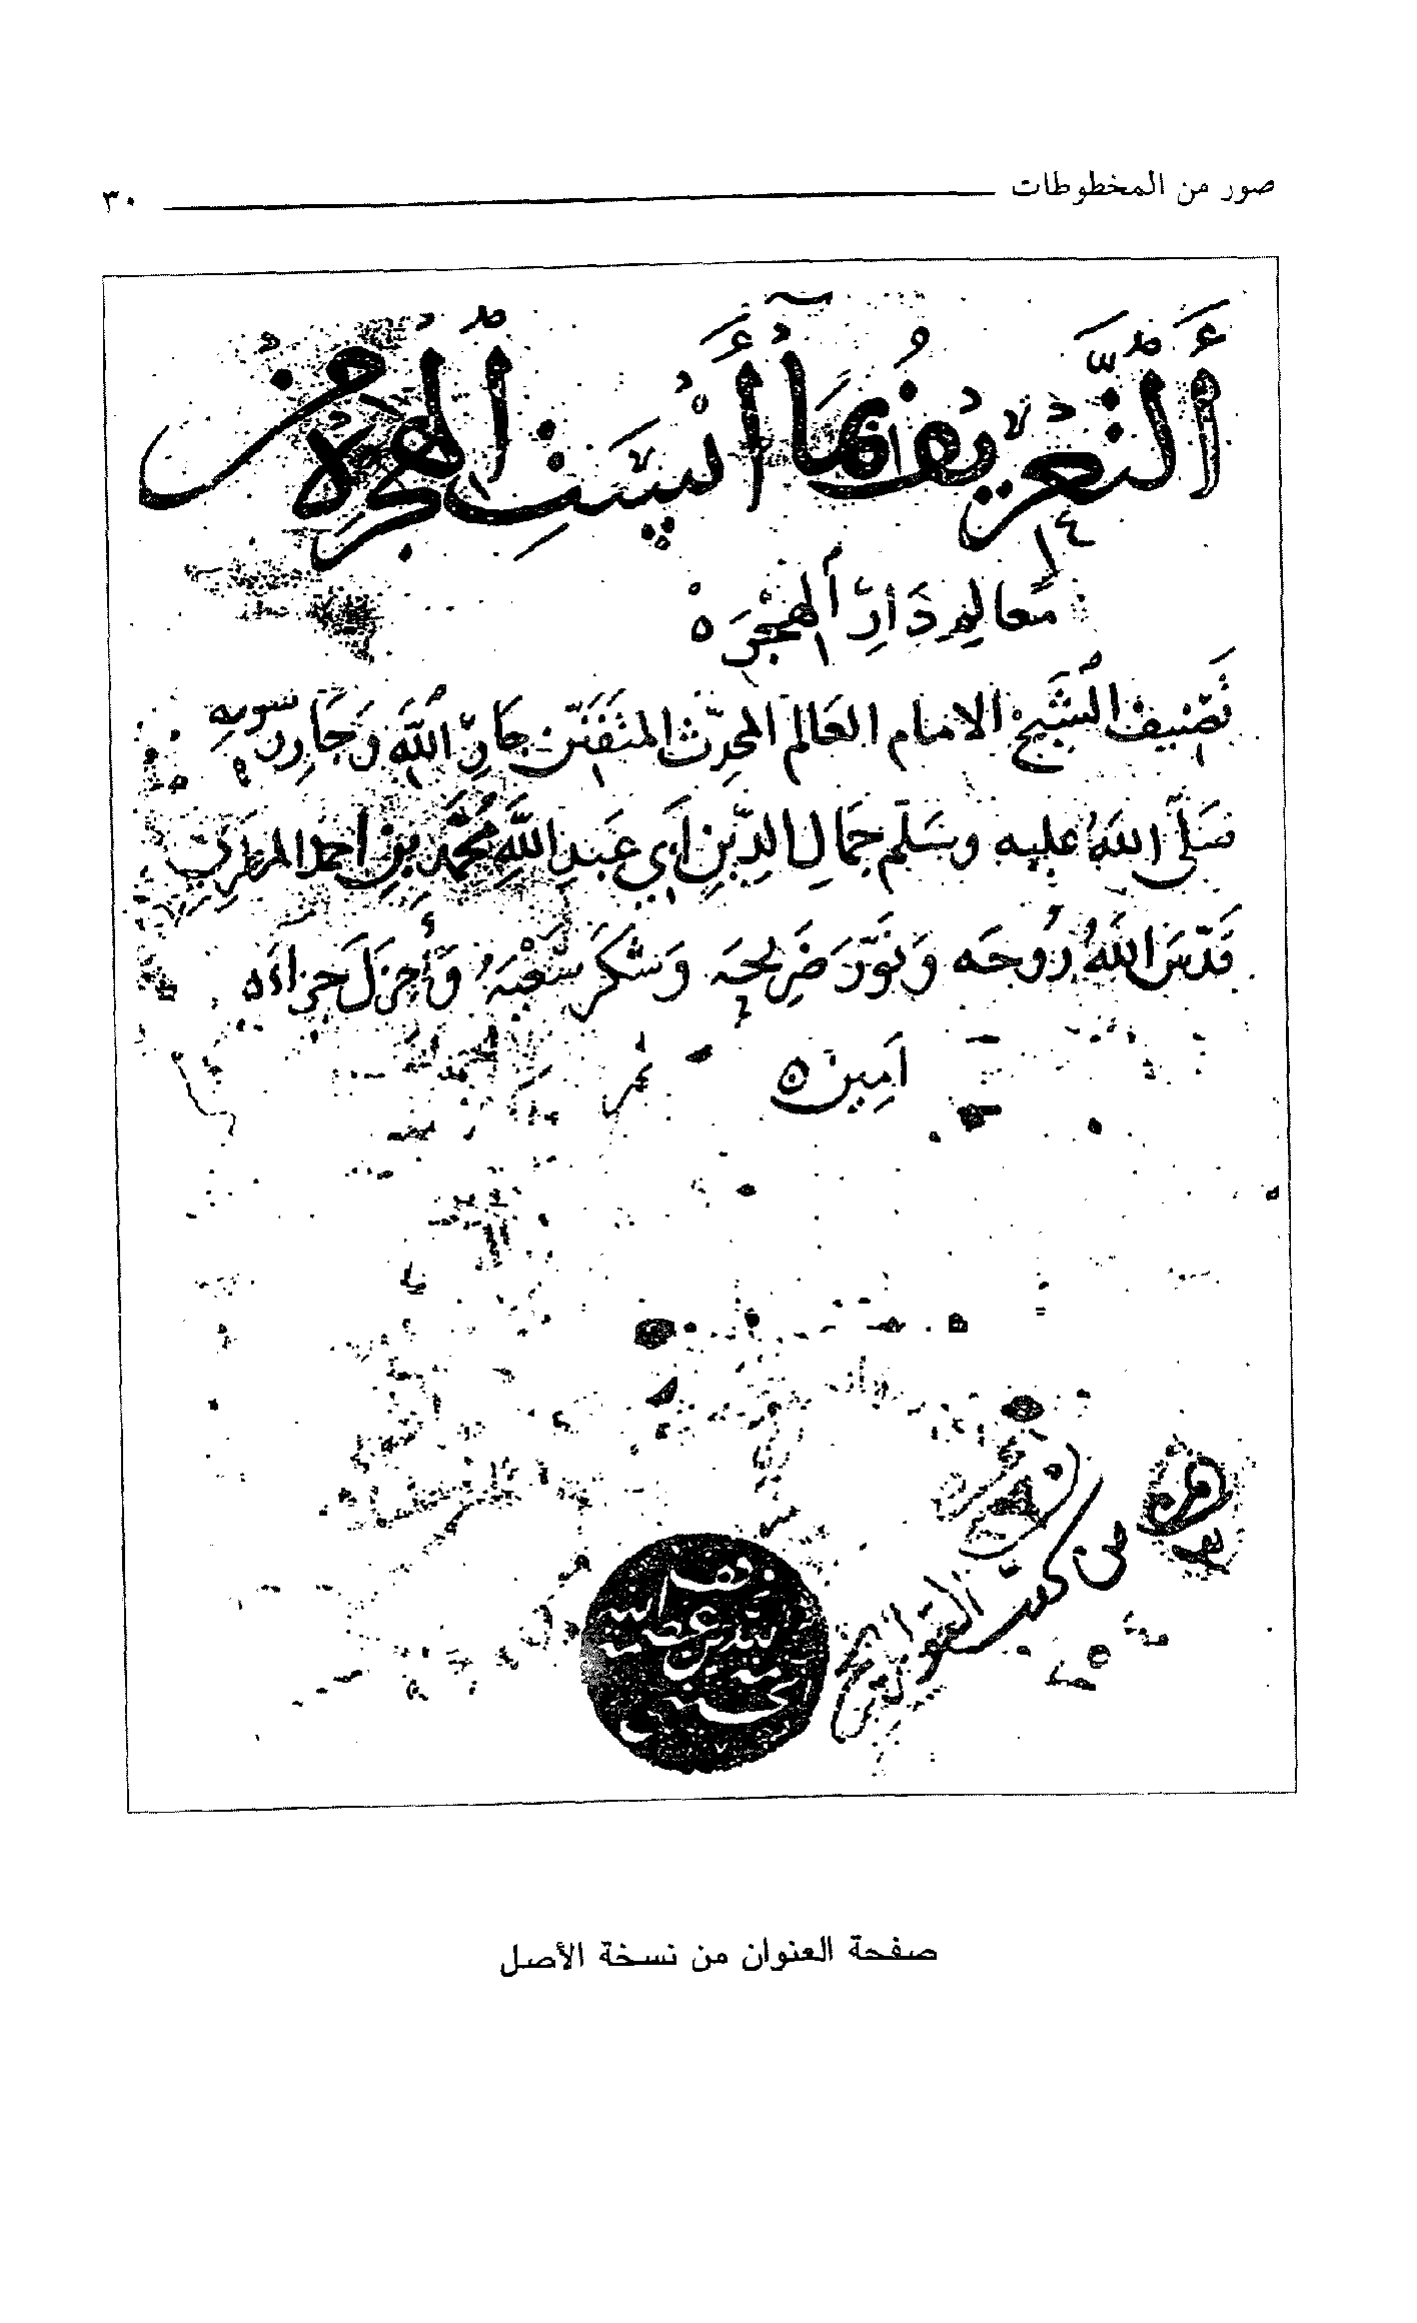 صور من المخطوطات ٣٠
ألتَّعْرِيفُ بِمَا أَنْسَتِ الهجرة من
مَعالِمِ دَارِ الهِجْرَه
تَصْنِيف الشَّيخ الامام العَالم المحدِّث المتفَنّن جَارِ اللَّهِ وَجَارِ رسوله
صَلَّى اللهُ عليه وسَلّم جَمَال الدِّينِ أَبي عَبدِ اللَّهِ مُحمَّدِ بنِ احمد المطري
قَدّسَ اللهُ رُوحَه وَنوَّرَ ضَرِيحَه وَشَكَرَ سَعْيَهُ وَأَجزَلَ جزاءَه
آمِين
من كتب
وقف
صفحة العنوان من نسخة الأصل